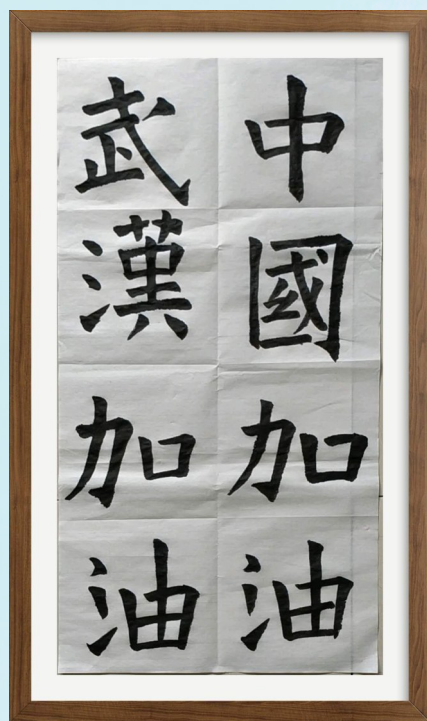 中國加油
武漢加油